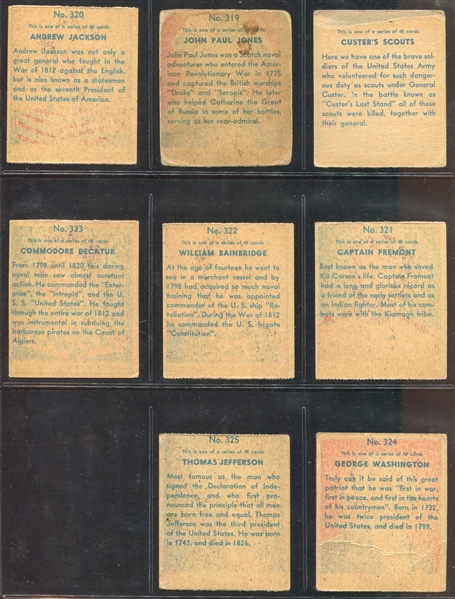 No. 320
This is one of a series of 48 cards
ANDREW JACKSON
Andrew Jackson was not only a
great general who fought in the
War of 1812 against the English,
but is also known as a statesman
and as the seventh President of
the United States of America.
No. 319
This is one of a series of 48 cards
JOHN PAUL JONES
John Paul Jones was a Scotch naval
adventurer who entered the Amer-
ican Revolutionary War in 1775
and captured the British warships
"Drake" and "Serapis". He later
also helped Catharine the Great
of Russia in some of her battles,
serving as her rear-admiral.
This is one of a series of 48 cards
CUSTER'S SCOUTS
Here we have one of the brave sol-
diers of the United States Army
who volunteered for such danger-
ous duty as scouts under General
Custer. In the battle known as
"Custer's Last Stand" all of these
scouts were killed, together with
their general.
No. 323
This is one of a series of 48 cards
COMMODORE DECATUR
From 1798 until 1820, this daring
naval man saw almost constant
action. He commanded the "Enter-
prise", the "Intrepid", and the U.
S. S. "United States". He fought
through the entire war of 1812 and
was instrumental in subduing the
barbarous pirates on the Coast of
Algiers.
No. 322
This is one of a series of 48 cards
WILLIAM BAINBRIDGE
At the age of fourteen he went to
sea in a merchant vessel and by
1798 had acquired so much naval
training that he was appointed
commander of the U. S. ship "Re-
taliation". During the War of 1812
he commanded the U. S. frigate
"Constitution".
No. 321
This is one of a series of 48 cards
CAPTAIN FREMONT
Best known as the man who saved
Kit Carson's life, Captain Fremont
had a long and glorious record as
a friend of the early settlers and as
an Indian fighter. Most of his com-
bats were with the Klamagh tribe.
No. 325
This is one of a series of 48 cards
THOMAS JEFFERSON
Most famous as the man who
signed the Declaration of Inde-
pendence, and who first pro-
nounced the principle that all men
are born free and equal. Thomas
Jefferson was the third president
of the United States. He was born
in 1743, and died in 1826.
No. 324
This is one of a series of 48 cards
GEORGE WASHINGTON
Truly can it be said of this great
patriot that he was "first in war,
first in peace, and first in the hearts
of his countrymen". Born in 1732,
he was twice president of the
United States, and died in 1799.